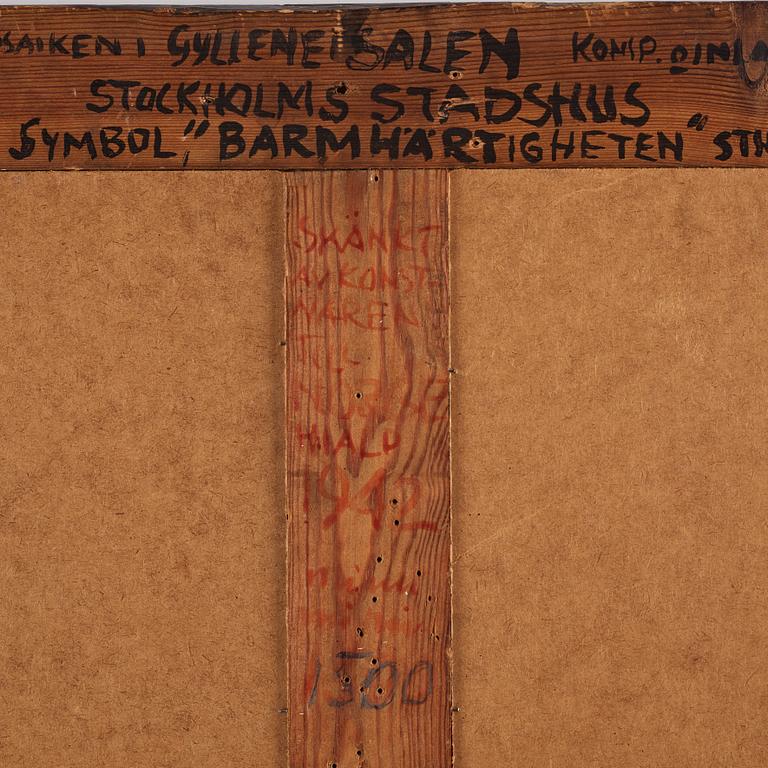 SAIKEN I GYLLENE SALEN KONSP.
STOCKHOLMS STADSHUS
SYMBOL, "BARMHÄRTIGHETEN" STH
SKÄNKT
AV KONST-
NÄREN
TILL
HJÄLP
1942
1500